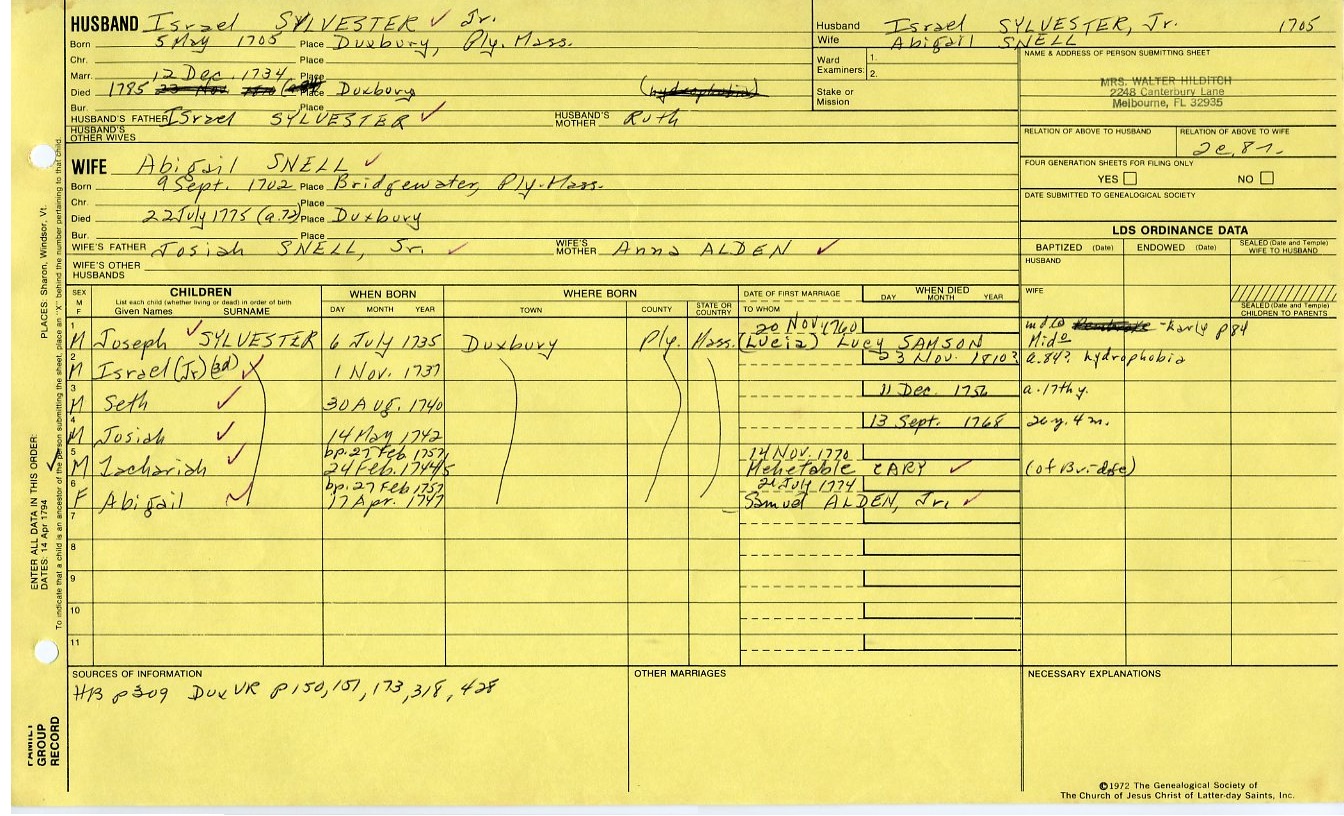 HUSBAND Israel SYLVESTER ✓ Jr.
Born 5 May 1705 Place Duxbury, Ply. Mass.
Chr. Place
Marr. 12 Dec. 1734 Place
Died 1785 23 Nov Place Duxbury (hydrophobia)
Bur. Place
HUSBAND'S FATHER Israel SYLVESTER ✓ HUSBAND'S MOTHER Ruth
HUSBAND'S OTHER WIVES
Husband Israel SYLVESTER, Jr. 1705
Wife Abigail SNELL
Ward Examiners: 1.
2.
Stake or Mission
NAME & ADDRESS OF PERSON SUBMITTING SHEET
MRS. WALTER HILDITCH
2248 Canterbury Lane
Melbourne, FL 32935
RELATION OF ABOVE TO HUSBAND RELATION OF ABOVE TO WIFE
2c. 8r.
FOUR GENERATION SHEETS FOR FILING ONLY
YES NO
DATE SUBMITTED TO GENEALOGICAL SOCIETY
WIFE Abigail SNELL ✓
Born 9 Sept. 1702 Place Bridgewater, Ply. Mass.
Chr. Place
Died 22 July 1775 (a.72) Place Duxbury
Bur. Place
WIFE'S FATHER Josiah SNELL, Jr. ✓ WIFE'S MOTHER Anna ALDEN ✓
WIFE'S OTHER HUSBANDS
LDS ORDINANCE DATA
BAPTIZED (Date) ENDOWED (Date) SEALED (Date and Temple) WIFE TO HUSBAND
HUSBAND
WIFE
SEALED (Date and Temple) CHILDREN TO PARENTS
SEX M F CHILDREN WHEN BORN WHERE BORN DATE OF FIRST MARRIAGE WHEN DIED
List each child (whether living or dead) in order of birth
Given Names SURNAME DAY MONTH YEAR TOWN COUNTY STATE OR COUNTRY TO WHOM DAY MONTH YEAR
20 Nov 1760
1 M Joseph ✓ SYLVESTER 6 July 1735 Duxbury Ply. Mass. (Lucia) Lucy SAMSON
md to - Karly p84
Mido
2 M Israel (Jr) (3d) ✓ 1 Nov. 1737 23 Nov. 1810? a.84? hydrophobia
3 M Seth ✓ 30 Aug. 1740 11 Dec. 1756 a.17th y.
4 M Josiah ✓ 14 May 1742 13 Sept. 1768 26 y. 4 m.
bp. 27 Feb 1757 14 Nov. 1770
5 M Zachariah ✓ 24 Feb. 1744/5 Mehetable CARY ✓ (of Bridge)
bp. 27 Feb 1757 21 July 1774
6 F Abigail ✓ 17 Apr. 1747 Samuel ALDEN, Jr. ✓
7
8
9
10
11
SOURCES OF INFORMATION
HB p309 Dux VR p150, 151, 173, 318, 428
OTHER MARRIAGES
NECESSARY EXPLANATIONS
©1972 The Genealogical Society of
The Church of Jesus Christ of Latter-day Saints, Inc.
FAMILY GROUP RECORD
ENTER ALL DATA IN THIS ORDER:
DATES: 14 Apr 1794
PLACES: Sharon, Windsor, Vt.
To indicate that a child is an ancestor of the person submitting the sheet, place an "X" behind the number pertaining to that child.